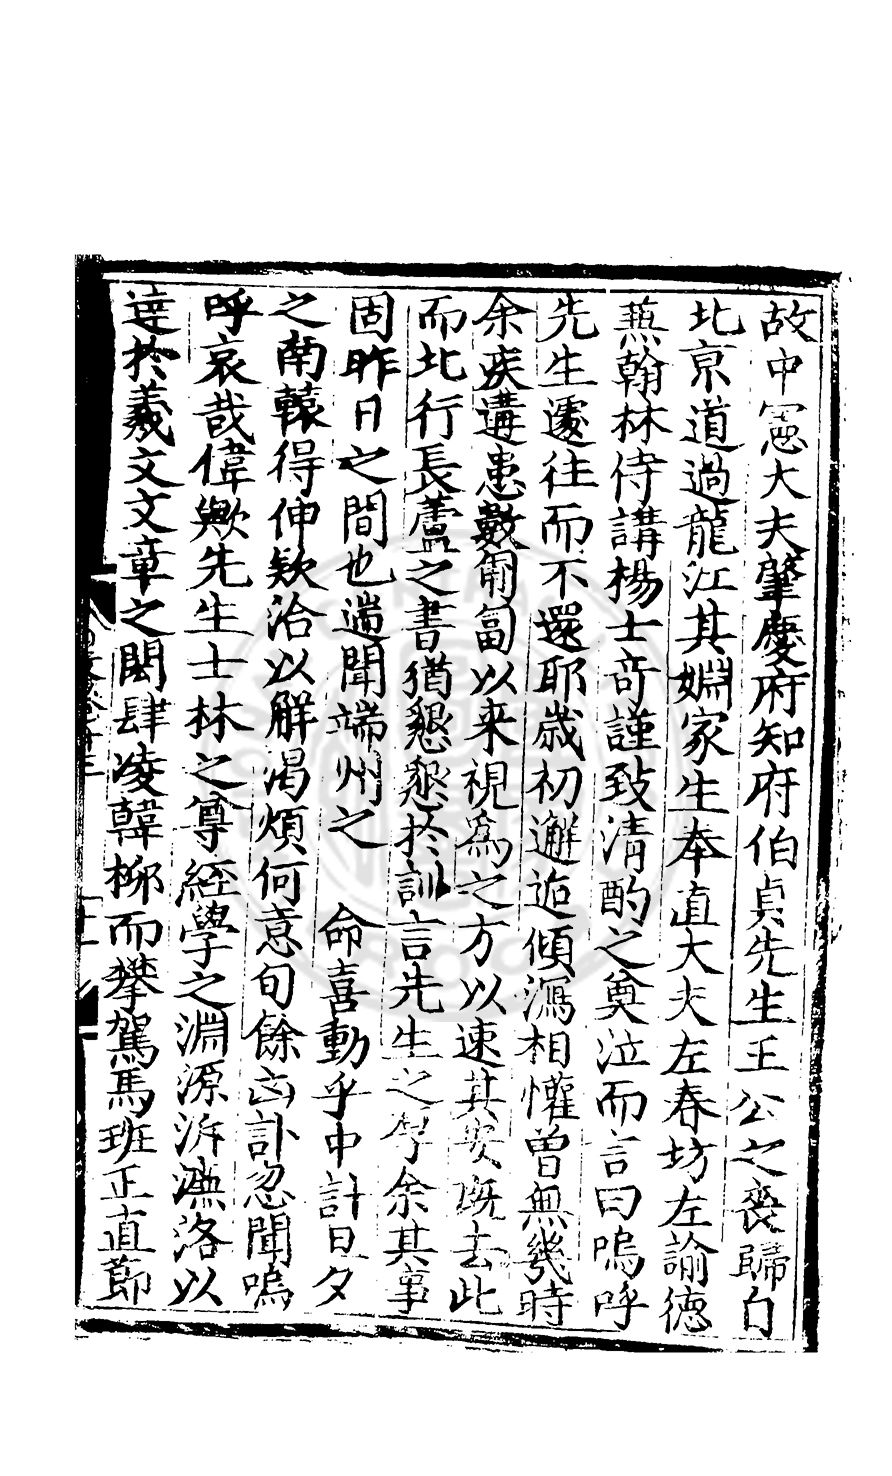 故中憲大夫肇慶府知府伯貞先生王公之喪歸自
北京道過龍江其婣家生奉直大夫左春坊左諭德
兼翰林侍講楊士竒謹致清酌之奠泣而言曰嗚呼
先生遽往而不還耶歳初邂逅傾瀉相懽曽無幾時
余疾遘患數匍匐以来視為之方以速其安既去此
而北行長蘆之書猶懇懇扵訓言先生之厚余其事
固昨日之間也遄聞端州之　命喜動乎中計旦夕
之南轅得伸欵洽以觧渴煩何意旬餘㐫訃忽聞嗚
呼哀哉偉歟先生士林之尊經學之淵源泝濂洛以
逹扵羲文文章之閎肆凌韓栁而攀駕馬班正直節